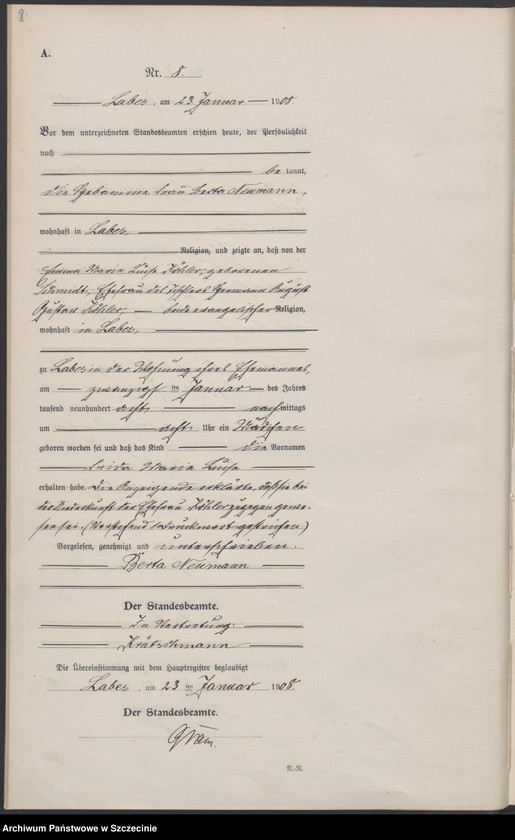 8
A.
Nr. 8.
Labes, am 23 Januar 1908.
Vor dem unterzeichneten Standesbeamten erschien heute, der Persönlichkeit
nach
be kannt,
die Hebamme Frau Berta Neumann,
wohnhaft in Labes,
Religion, und zeigte an, daß von der
Emma Maria Luise Köhler, geborenen
Schmidt, Ehefrau des Tischlers Hermann August
Gustav Köhler, beide evangelischer Religion,
wohnhaft in Labes,
zu Labes in der Wohnung ihres Ehemannes,
am zwanzigsten Januar des Jahres
tausend neunhundert acht nachmittags
um acht Uhr ein Mädchen
geboren worden sei und daß das Kind die Vornamen
Frida Maria Luise
erhalten habe. Die Anzeigende erklärte, daß sie bei
der Niederkunft der Ehefrau Köhler zugegen gewe-
sen sei. (Vorstehend 1 Druckwort gestrichen)
Vorgelesen, genehmigt und unterschrieben.
Berta Neumann
Der Standesbeamte.
In Vertretung:
Krätschmann
Die Übereinstimmung mit dem Hauptregister beglaubigt
Labes, am 23 ten Januar 1908.
Der Standesbeamte.
N.-R.
Archiwum Państwowe w Szczecinie